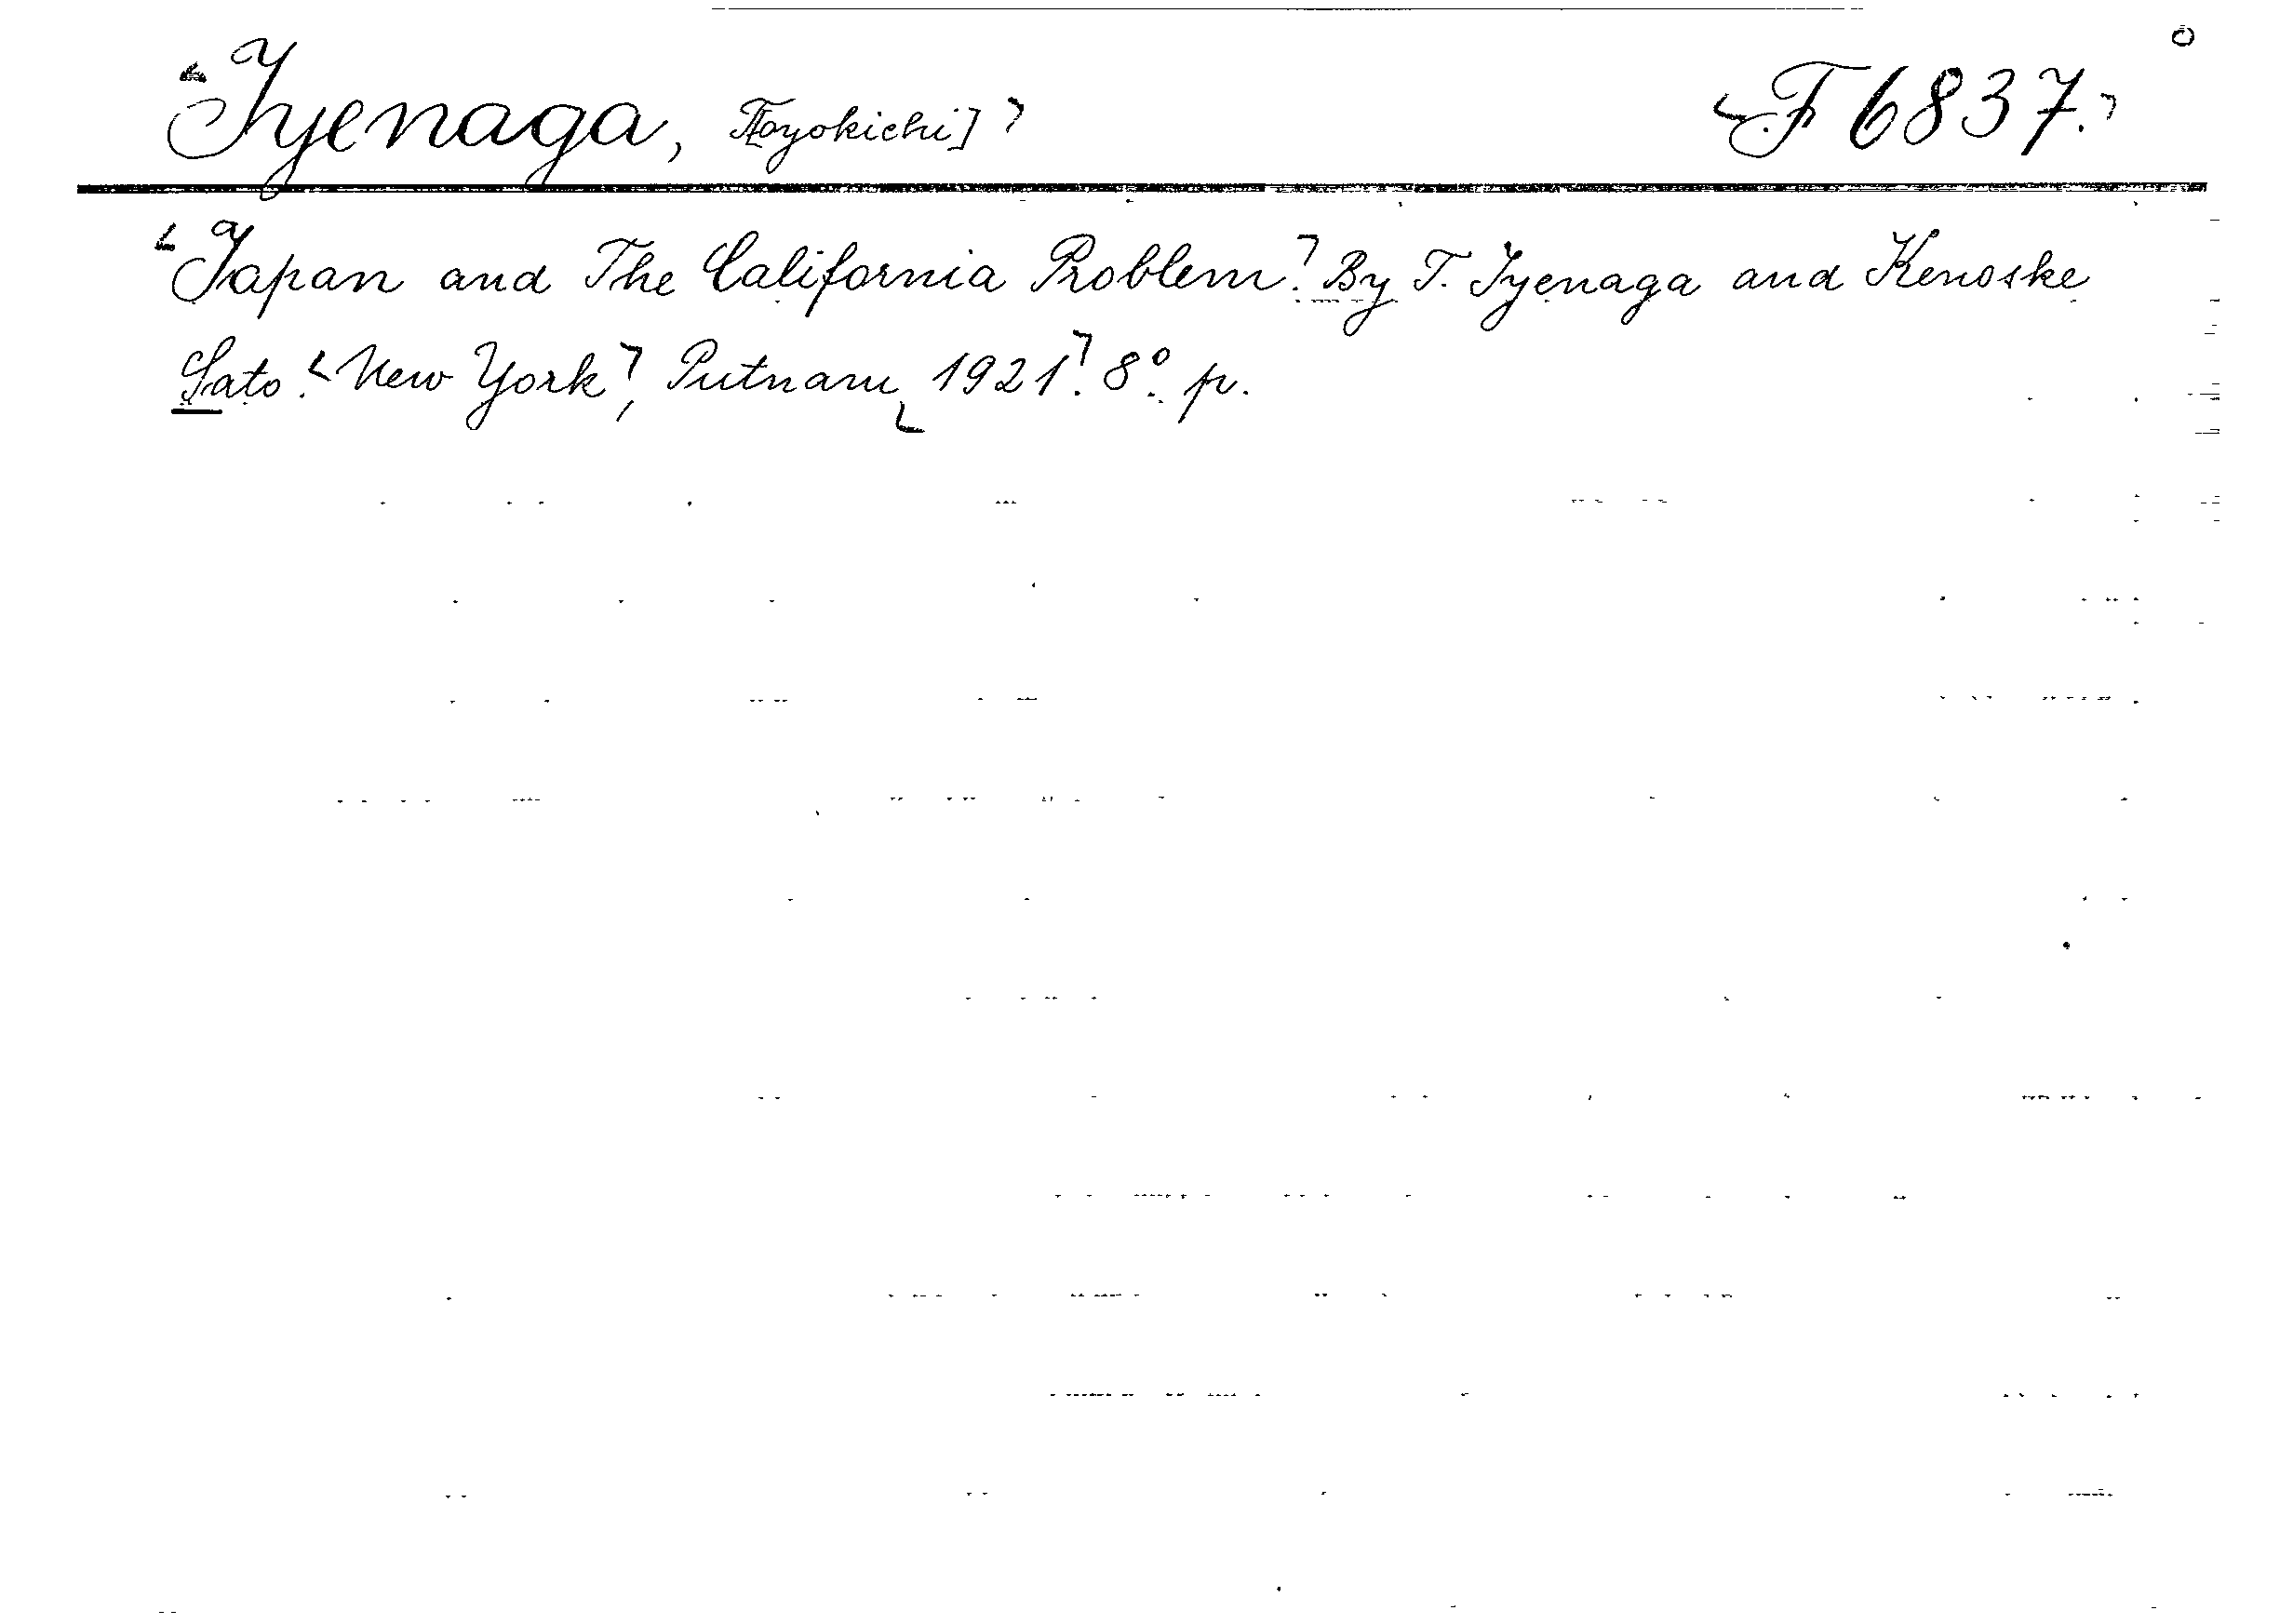 Iyenaga, T[oyokichi] F 6837.
Japan and The California Problem. By T. Iyenaga and Kenoske
Sato. New York, Putnam, 1921. 8°. p.